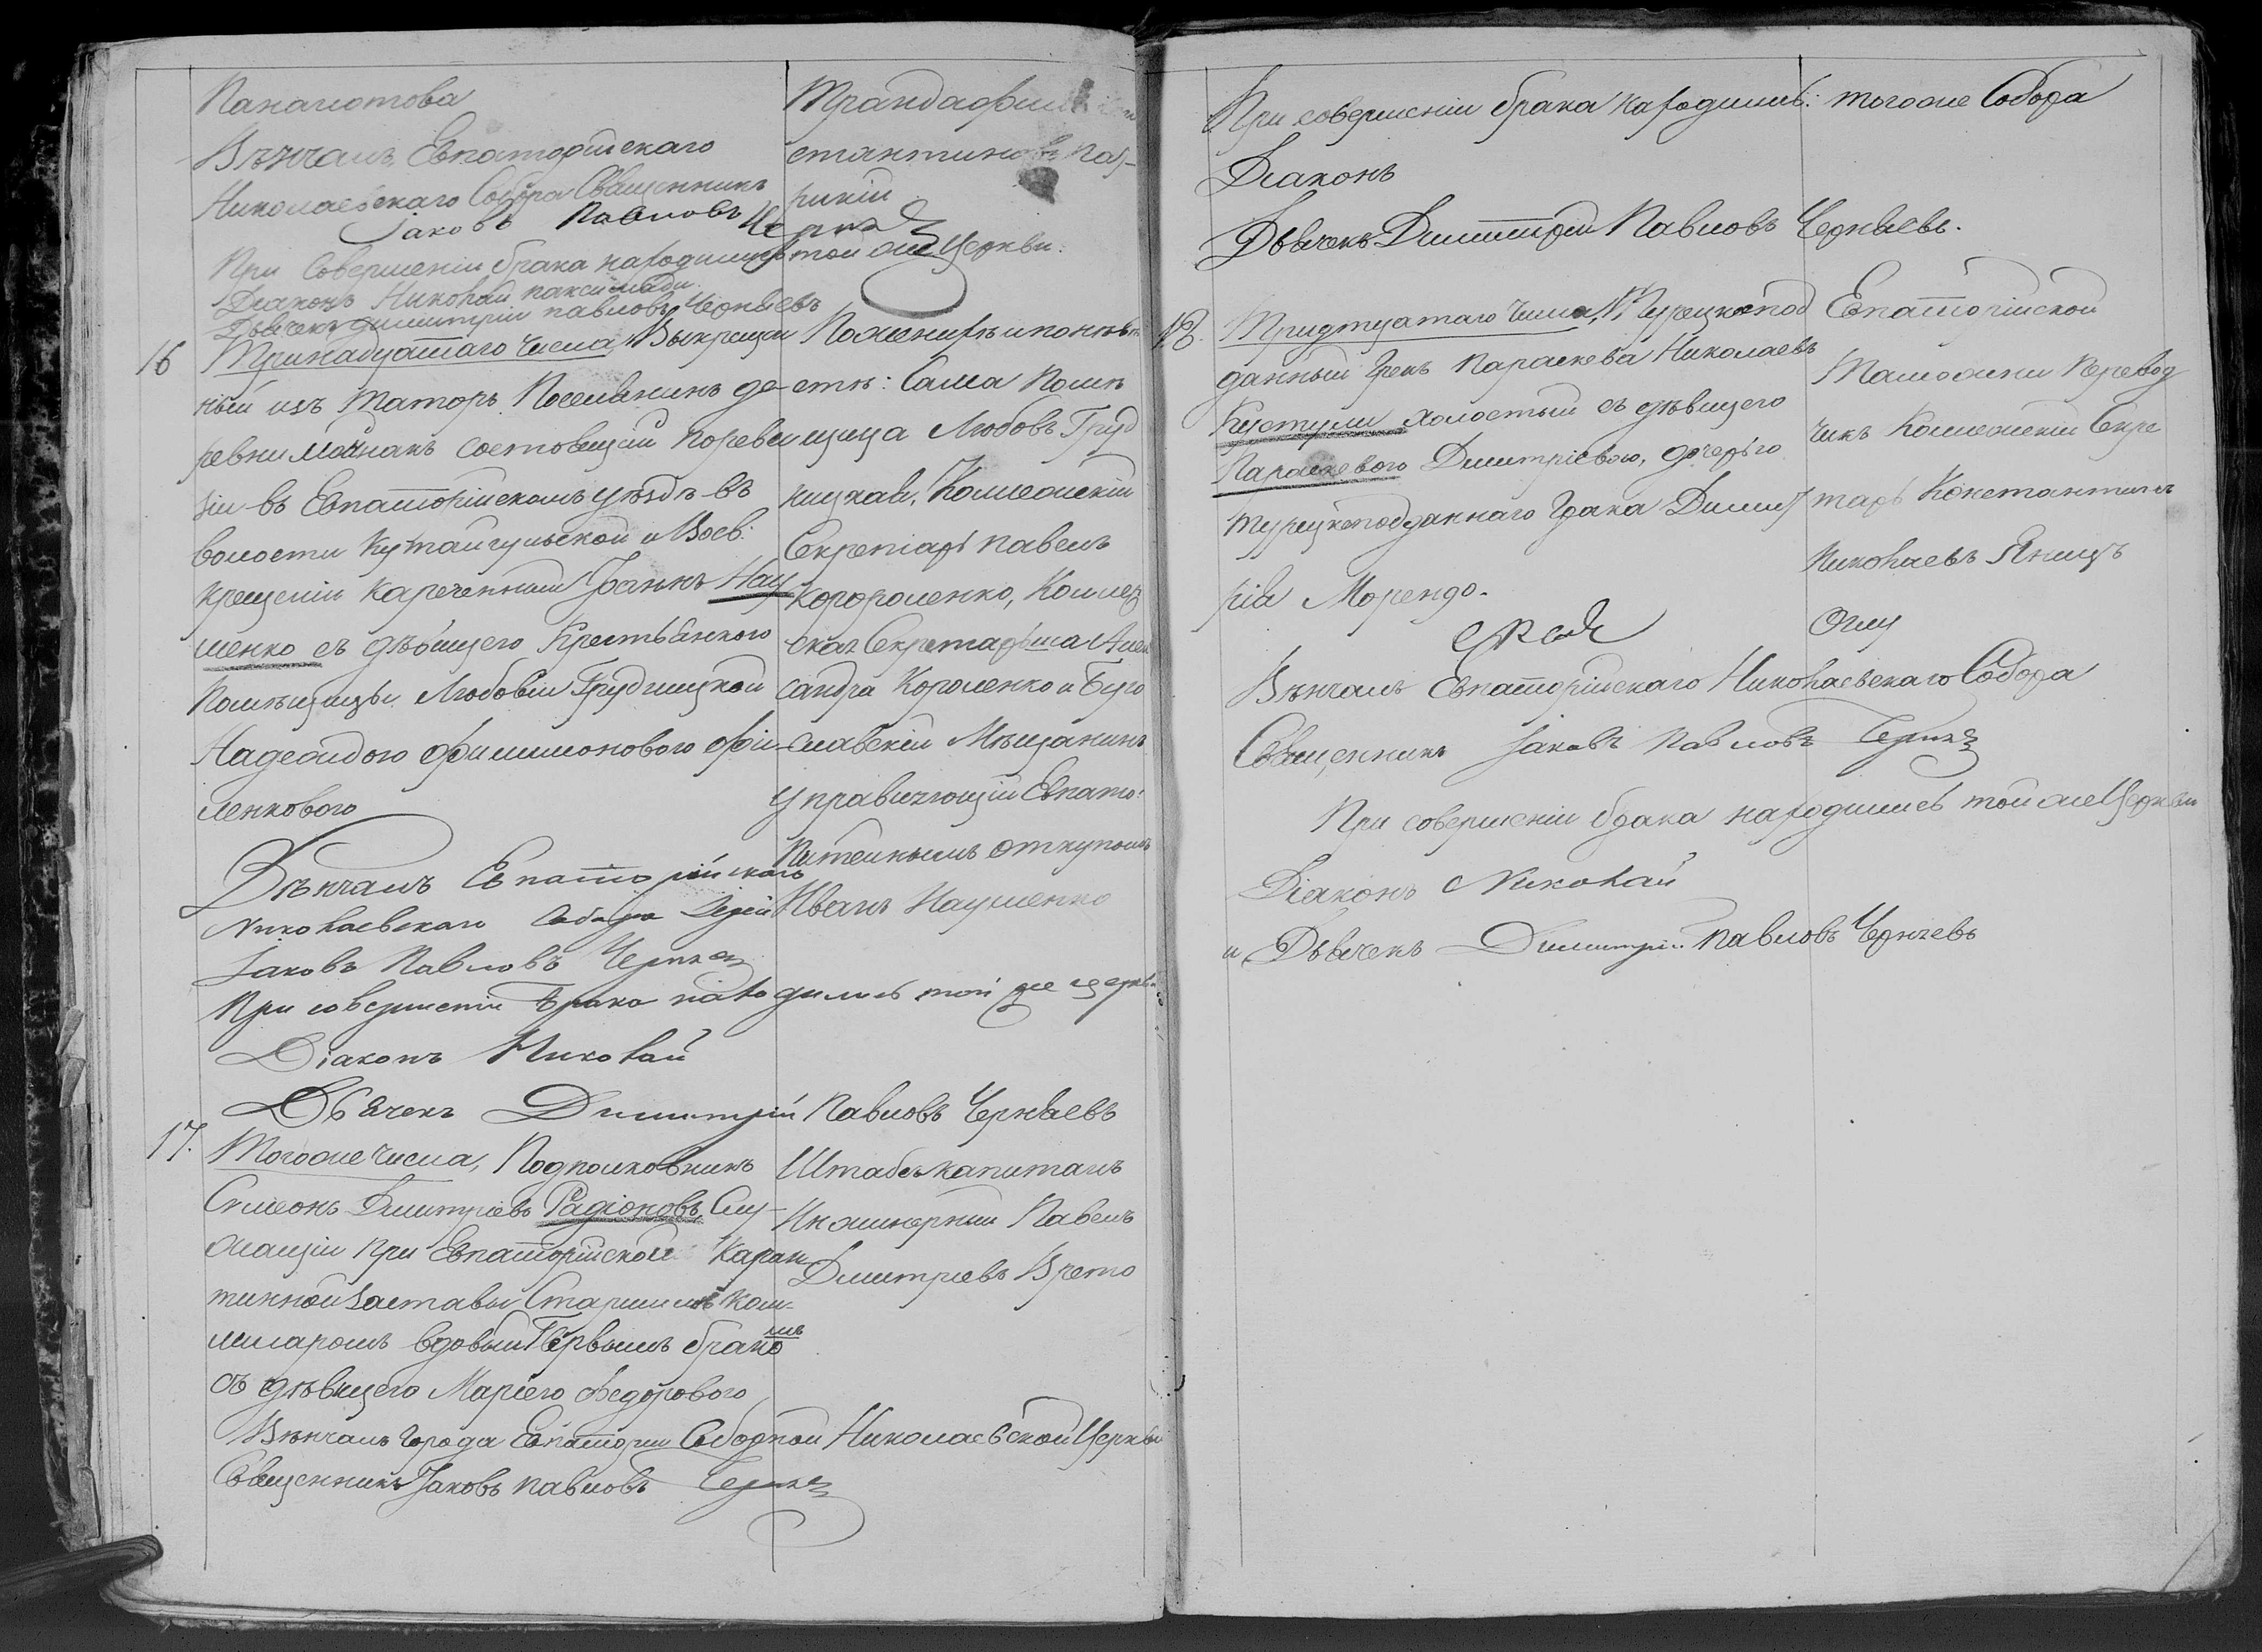 Панаиотова
Вѣнчалъ Евпаторійскаго
Николаевскаго Собора Священникъ
Іаковъ Павловъ
При Совершеніи брака находились той же Церкви.
Діаконъ Николай
Дьячекъ Димитрій Павловъ Черняевъ
Трандафилъ
стянтиновъ
16
Тринадцатаго числа, Выкрещен
ный изъ Таторъ Поселянинъ де-
ревни Мойнакъ состовщей
въ Евпаторійскомъ уѣздѣ въ
волости Кутайгульской и Восв:
крещеніи Нареченный Іоаннъ Нау
менко съ дѣвицею Крестьянкою
Помѣщицы Любовіи Грудницкой
Надеждою Филимоновою Фи-
ленковою
По женихѣ и по невѣ
стѣ: Сама Помѣ
щица Любовь Груд
ницкая, Коллежскій
Секретарь Павелъ
Короленко, Коллеж
скаъ Секретарьша Алек
сандра Короленко и Буго
славскій Мѣщанинъ
Управляющій Евпато:
Питейнымъ откупомъ
Иванъ Науменко
Вѣнчалъ Евпаторійскаго
Николаевскаго Собора Іерей
Іаковъ Павловъ
При совершеніи Брака находились той же церкви
Діаконъ Николай
Дьячекъ Димитрій Павловъ Черняевъ
17.
Тогоже числа, Подполковникъ
Симеонъ Димитріевъ Радіоновъ, Слу-
жащій при Евпаторійской Каран
тинной Заставы Старшимъ Ком-
мисаромъ вдовый Первымъ бракомъ
съ дѣвицею Маріею Федоровою
Штабсъ капитанъ
Инжинерный Павелъ
Дмитріевъ Врето
Вѣнчалъ города Евпаторіи Соборной Николаевской Церкви
Священникъ Іаковъ Павловъ
При совершеніи брака находились: тогоже Собора
Діаконъ
Дьячекъ Димитрій Павловъ Черняевъ.
18.
Тридцатаго числа, Турецкопод
данный Грекъ Параскева Николаевъ
Кустули холостый съ дѣвицею
Параскевою Димитріевою, дочерью
турецкоподданнаго Грека Димит
рія Морендо.
Евпаторійской
Таможни Перевод
чикъ Коллежскій Секре
тарь Константинъ
Николаевъ Яницъ
Оглу
Вѣнчалъ Евпаторійскаго Николаевскаго Собора
Священникъ Іаковъ Павловъ
При совершеніи брака находились той же Церкви
Діаконъ Николай
и Дьячекъ Димитрій Павловъ Черняевъ